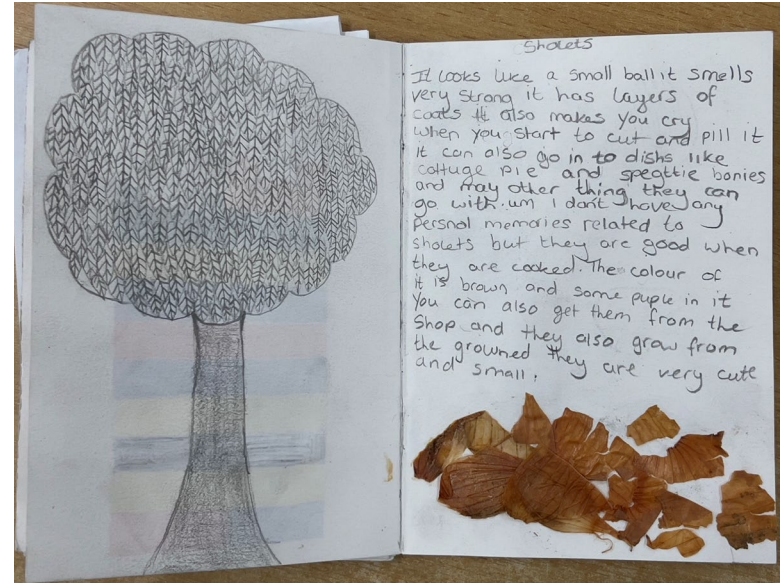 Sholets
It looks like a small ball it smells
very strong it has layers of
coats it also makes you cry
when you start to cut and pill it
it can also go in to dishs like
cottuge pie and spegttie bonies
and may other thing they can
go with. um I don't have any
persnal memories related to
sholets but they are good when
they are cooked. The colour of
it is brown and some puple in it
You can also get them from the
shop and they also grow from
the growned they are very cute
and small.